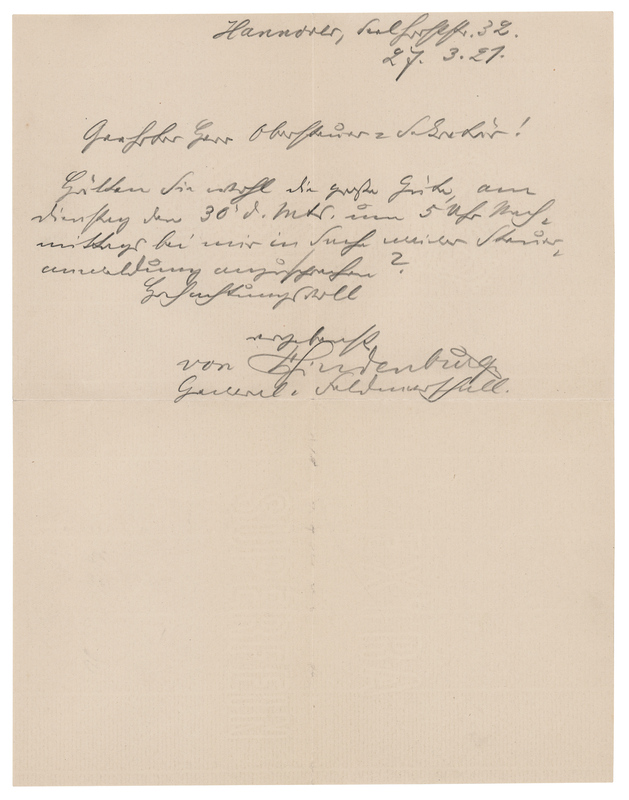 Hannover, Seelhorststr. 32.
27. 3. 21.
Geehrter Herr Obersteuer=Sekretär!
Hätten Sie wohl die große Güte, am
Dienstag den 30' d. Mts. um 5 Uhr Nach=
mittags bei mir in Sache meiner Steuer=
anmeldung anzusprechen?
Hochachtungsvoll
ergebenst
von Hindenburg
General=Feldmarschall.
SUPERFEIN
EXTRA